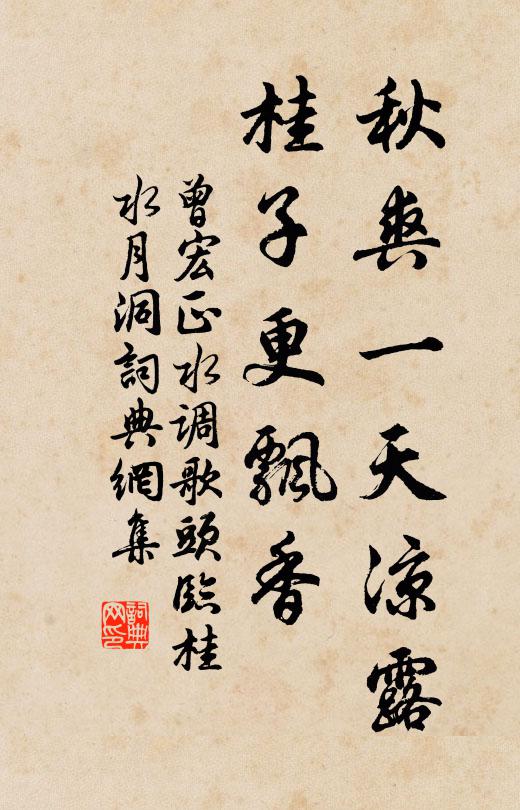 秋爽一天涼露
桂子更飄香
曾宏正水调歌頭臨桂
水月洞詞典網集
詞典网印